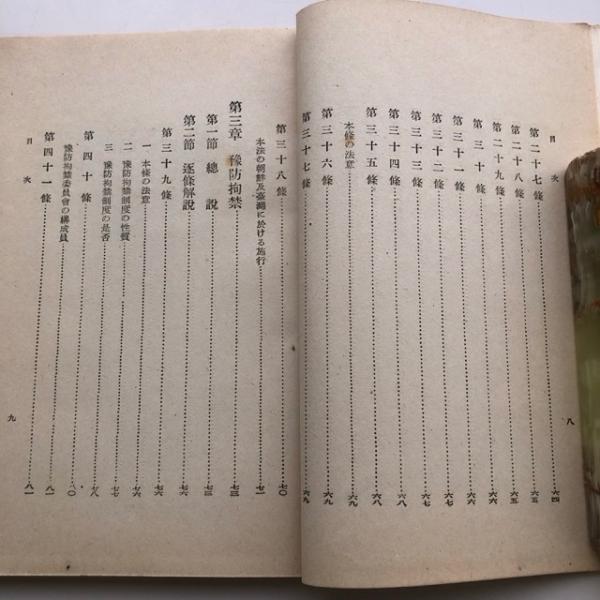 目次
八
第二十七條……六四
第二十八條……六五
第二十九條……六五
第三十條……六六
第三十一條……六六
第三十二條……六七
第三十三條……六七
第三十四條……六八
第三十五條……六八
本條の法意……六九
第三十六條……六九
第三十七條……六九
第三十八條……七〇
本法の朝鮮及臺灣に於ける施行……七一
第三章 豫防拘禁……七三
第一節 總說……七三
第二節 逐條解說……七六
第三十九條……七六
一 本條の法意……七六
二 豫防拘禁制度の性質……七七
三 豫防拘禁制度の是否……七七
第四十條……七八
豫防拘禁委員會の構成員……八〇
第四十一條……八一
目次
九